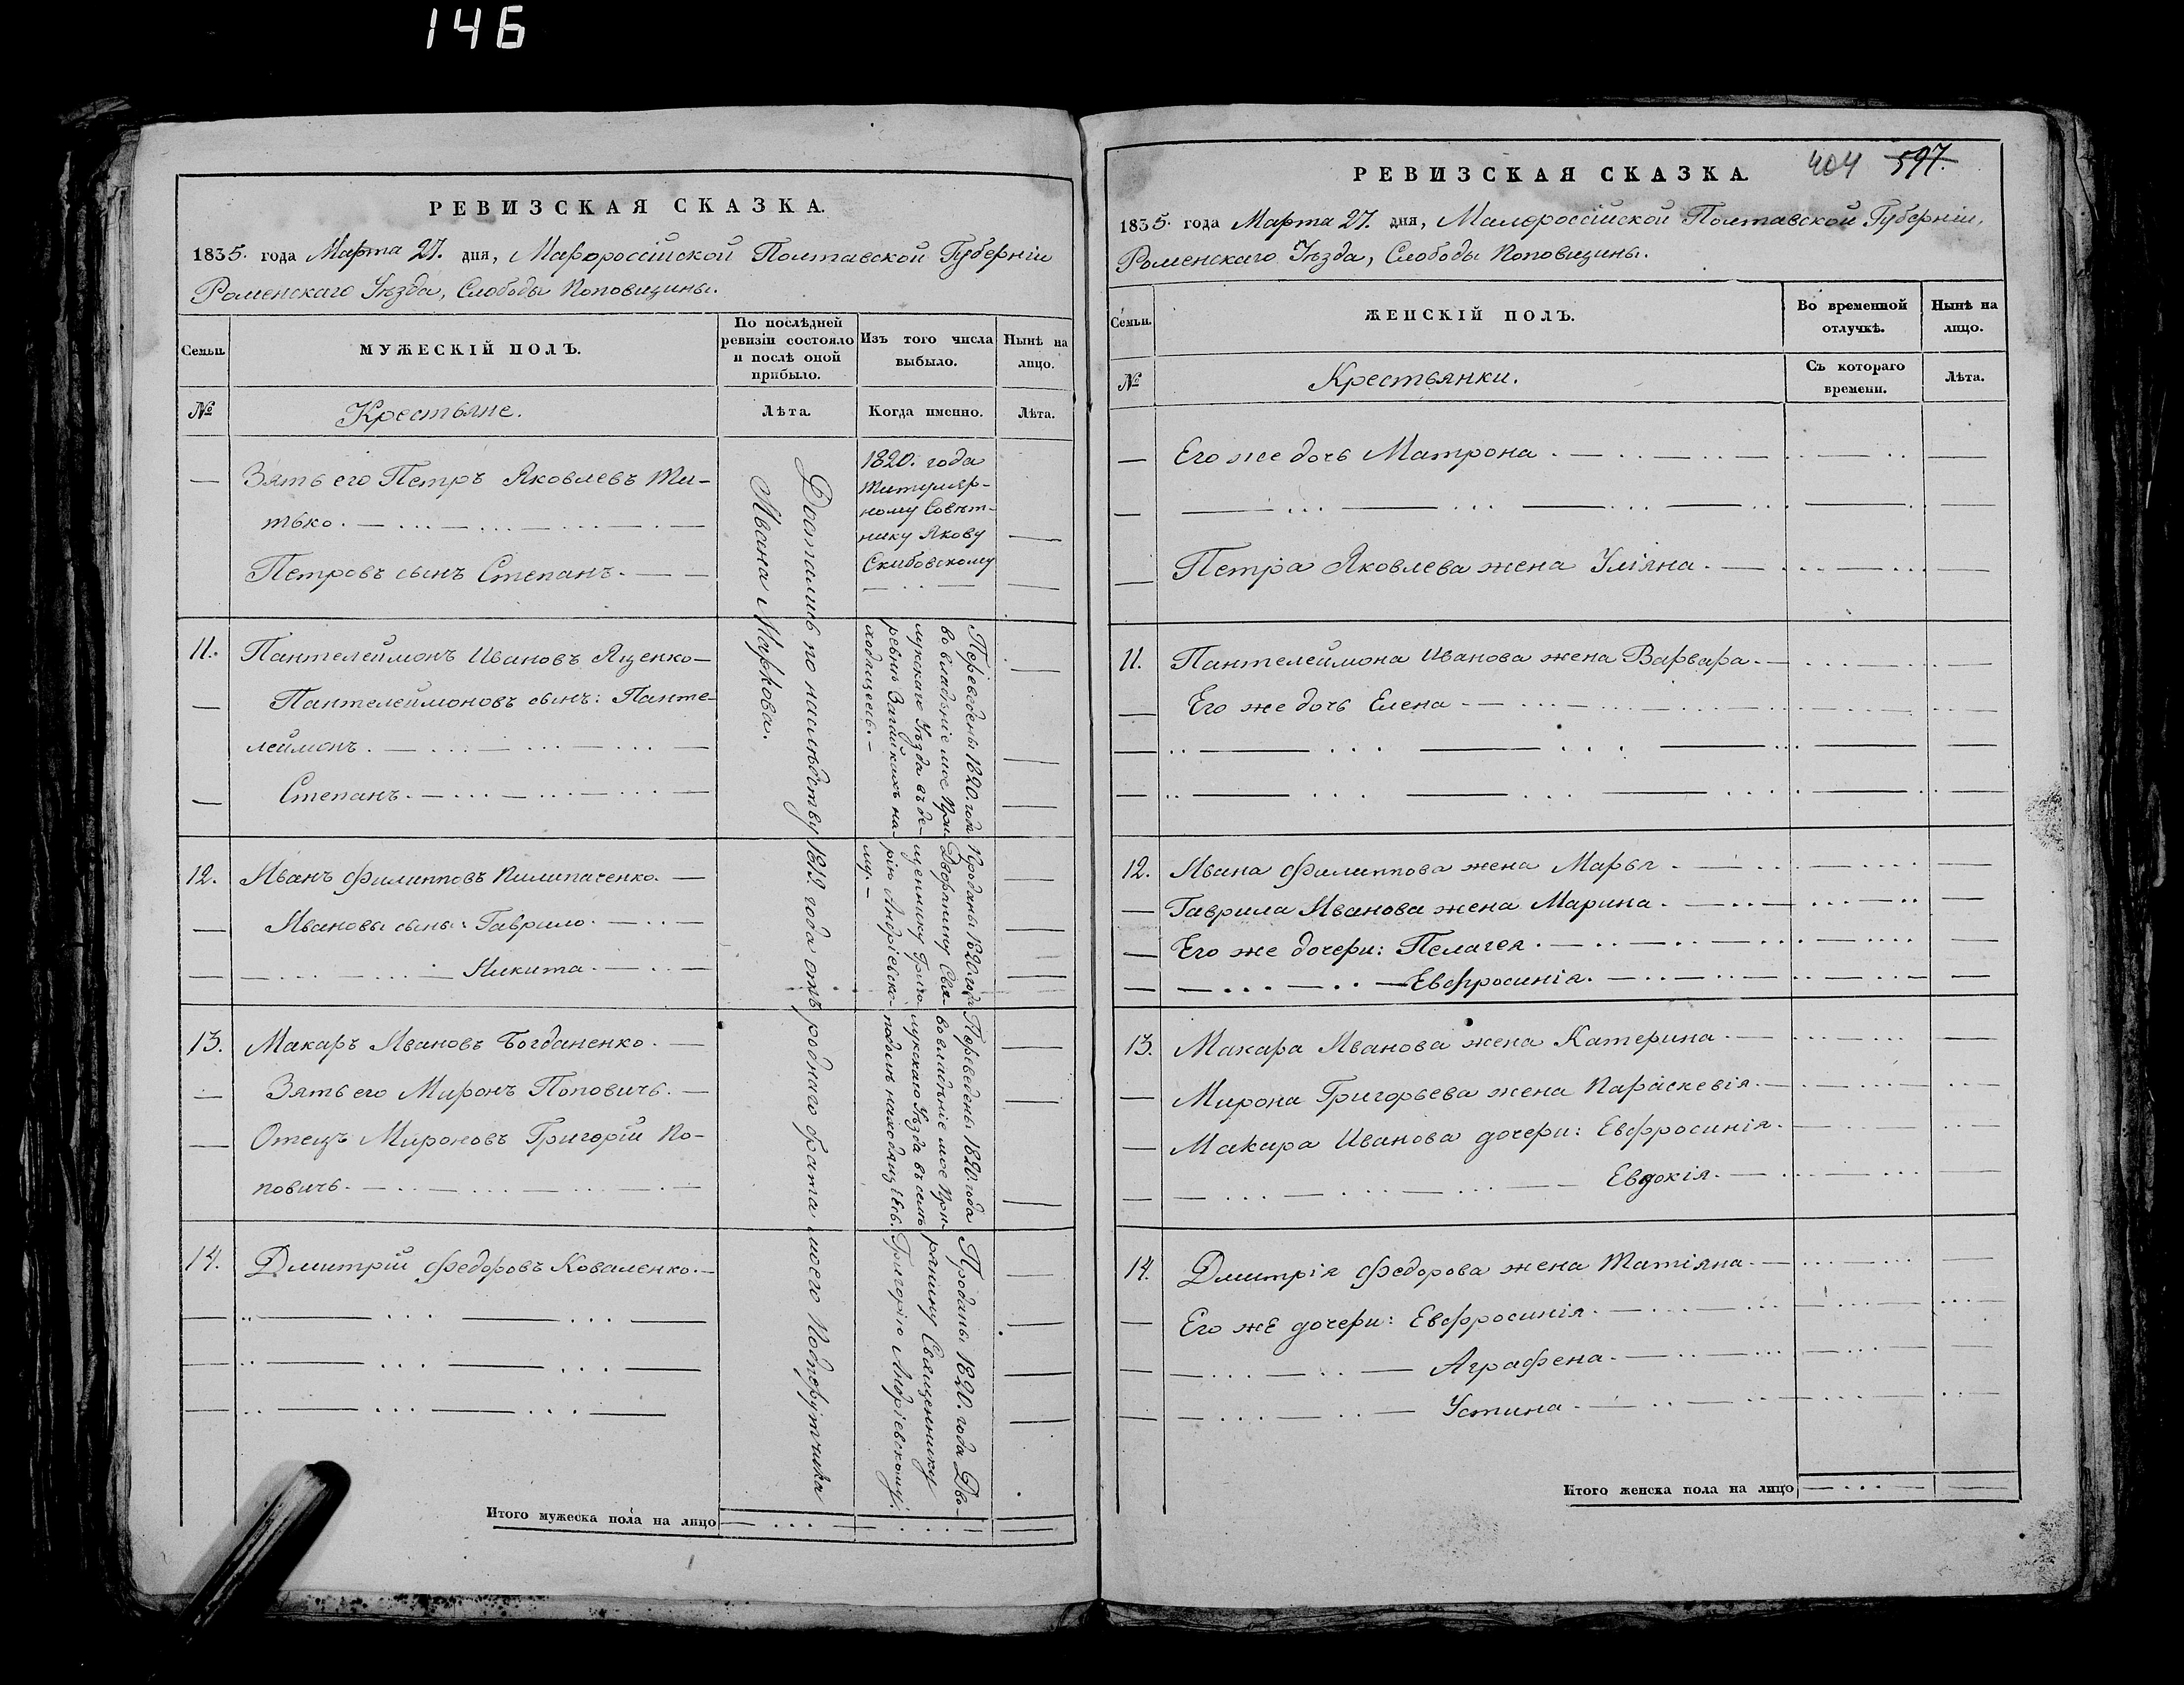 146
РЕВИЗСКАЯ СКАЗКА.
1835. года Марта 27. дня, Малороссійской Полтавской Губерніи
Роменскаго Уѣзда, Слободы Поповщины.
Семьи.
МУЖЕСКІЙ ПОЛЪ.
По послѣдней
ревизіи состояло
и послѣ оной
прибыло.
Изъ того числа
выбыло.
Нынѣ на
лицо.
№
Крестьяне.
Лѣта.
Когда именно.
Лѣта.
Зять его Петръ Яковлевъ Ти-
тько.
Петровъ сынъ Степанъ.
1820. года
Титуляр-
ному Совѣт-
нику Якову
Скибовскому
11. Пантелеймонъ Ивановъ Яценко
Пантелеймоновъ сынъ: Панте-
леймонъ.
Степанъ.
Переведены 1820. года
во владѣніе мое При-
лукскаго Уѣзда въ де-
ревнѣ находящееся.
12. Иванъ Филипповъ Пилипаченко.
Ивановы сыны: Гаврило.
Никита.
Проданы 1820 года
Дворянину Свя-
щеннику Григо-
рію Андріевско-
му.
13. Макаръ Ивановъ Богданенко.
Зять его Миронъ Поповичъ.
Отецъ Мироновъ Григорій По-
повичъ.
Переведены 1820. года
во владѣніе мое При-
лукскаго Уѣзда въ селѣ
14. Дмитрій Федоровъ Коваленко.
Проданы 1820. года Дво-
рянину Священнику
Григорію Андріевскому.
Достались по наслѣдству 1819. года отъ роднаго брата моего Подпоручика
Ивана Маркова.
Итого мужеска пола на лицо
РЕВИЗСКАЯ СКАЗКА.
404 597.
1835. года Марта 27. дня, Малороссійской Полтавской Губерніи,
Роменскаго Уѣзда, Слободы Поповщины.
Семьи.
ЖЕНСКІЙ ПОЛЪ.
Во временной
отлучкѣ.
Нынѣ на
лицо.
№
Крестьянки.
Съ котораго
времени.
Лѣта.
Его же дочь Матрона.
Петра Яковлева жена Уліяна.
11. Пантелеймона Иванова жена Варвара.
Его же дочь Елена
12. Ивана Филиппова жена Марья
Гаврила Иванова жена Марина.
Его же дочери: Пелагея.
Евфросинія.
13. Макара Иванова жена Катерина
Мирона Григорьева жена Параскевія.
Макара Иванова дочери: Евфросинія.
Евдокія.
14. Дмитрія Федорова жена Татіяна.
Его же дочери: Евфросинія.
Аграфена.
Устина.
Итого женска пола на лицо